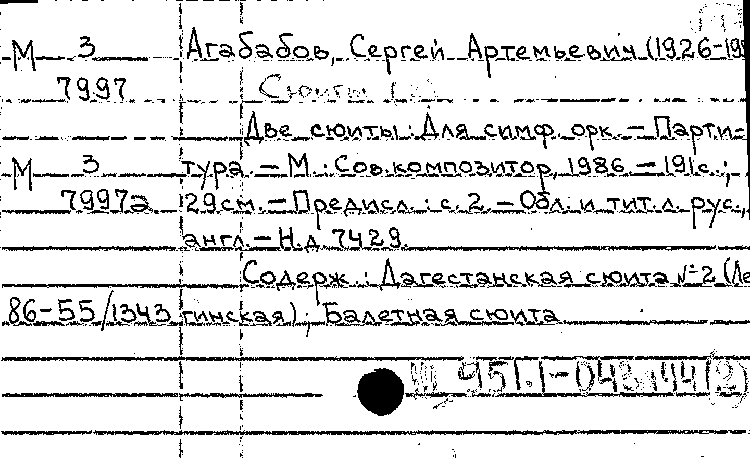 М 3 Агабабов, Сергей Артемьевич (1926-19
7997 Сюиты
Две сюиты : Для симф. орк. — Парти-
М 3 тура. — М. : Сов. композитор, 1986. — 191 с. ;
7997а 29 см. — Предисл. : с. 2. — Обл. и тит. л. рус.,
англ. — Н.д. 7429.
Содерж.: Дагестанская сюита №2 (Ле
86-55/1343 гинская) ; Балетная сюита
951.1-043.144(2)